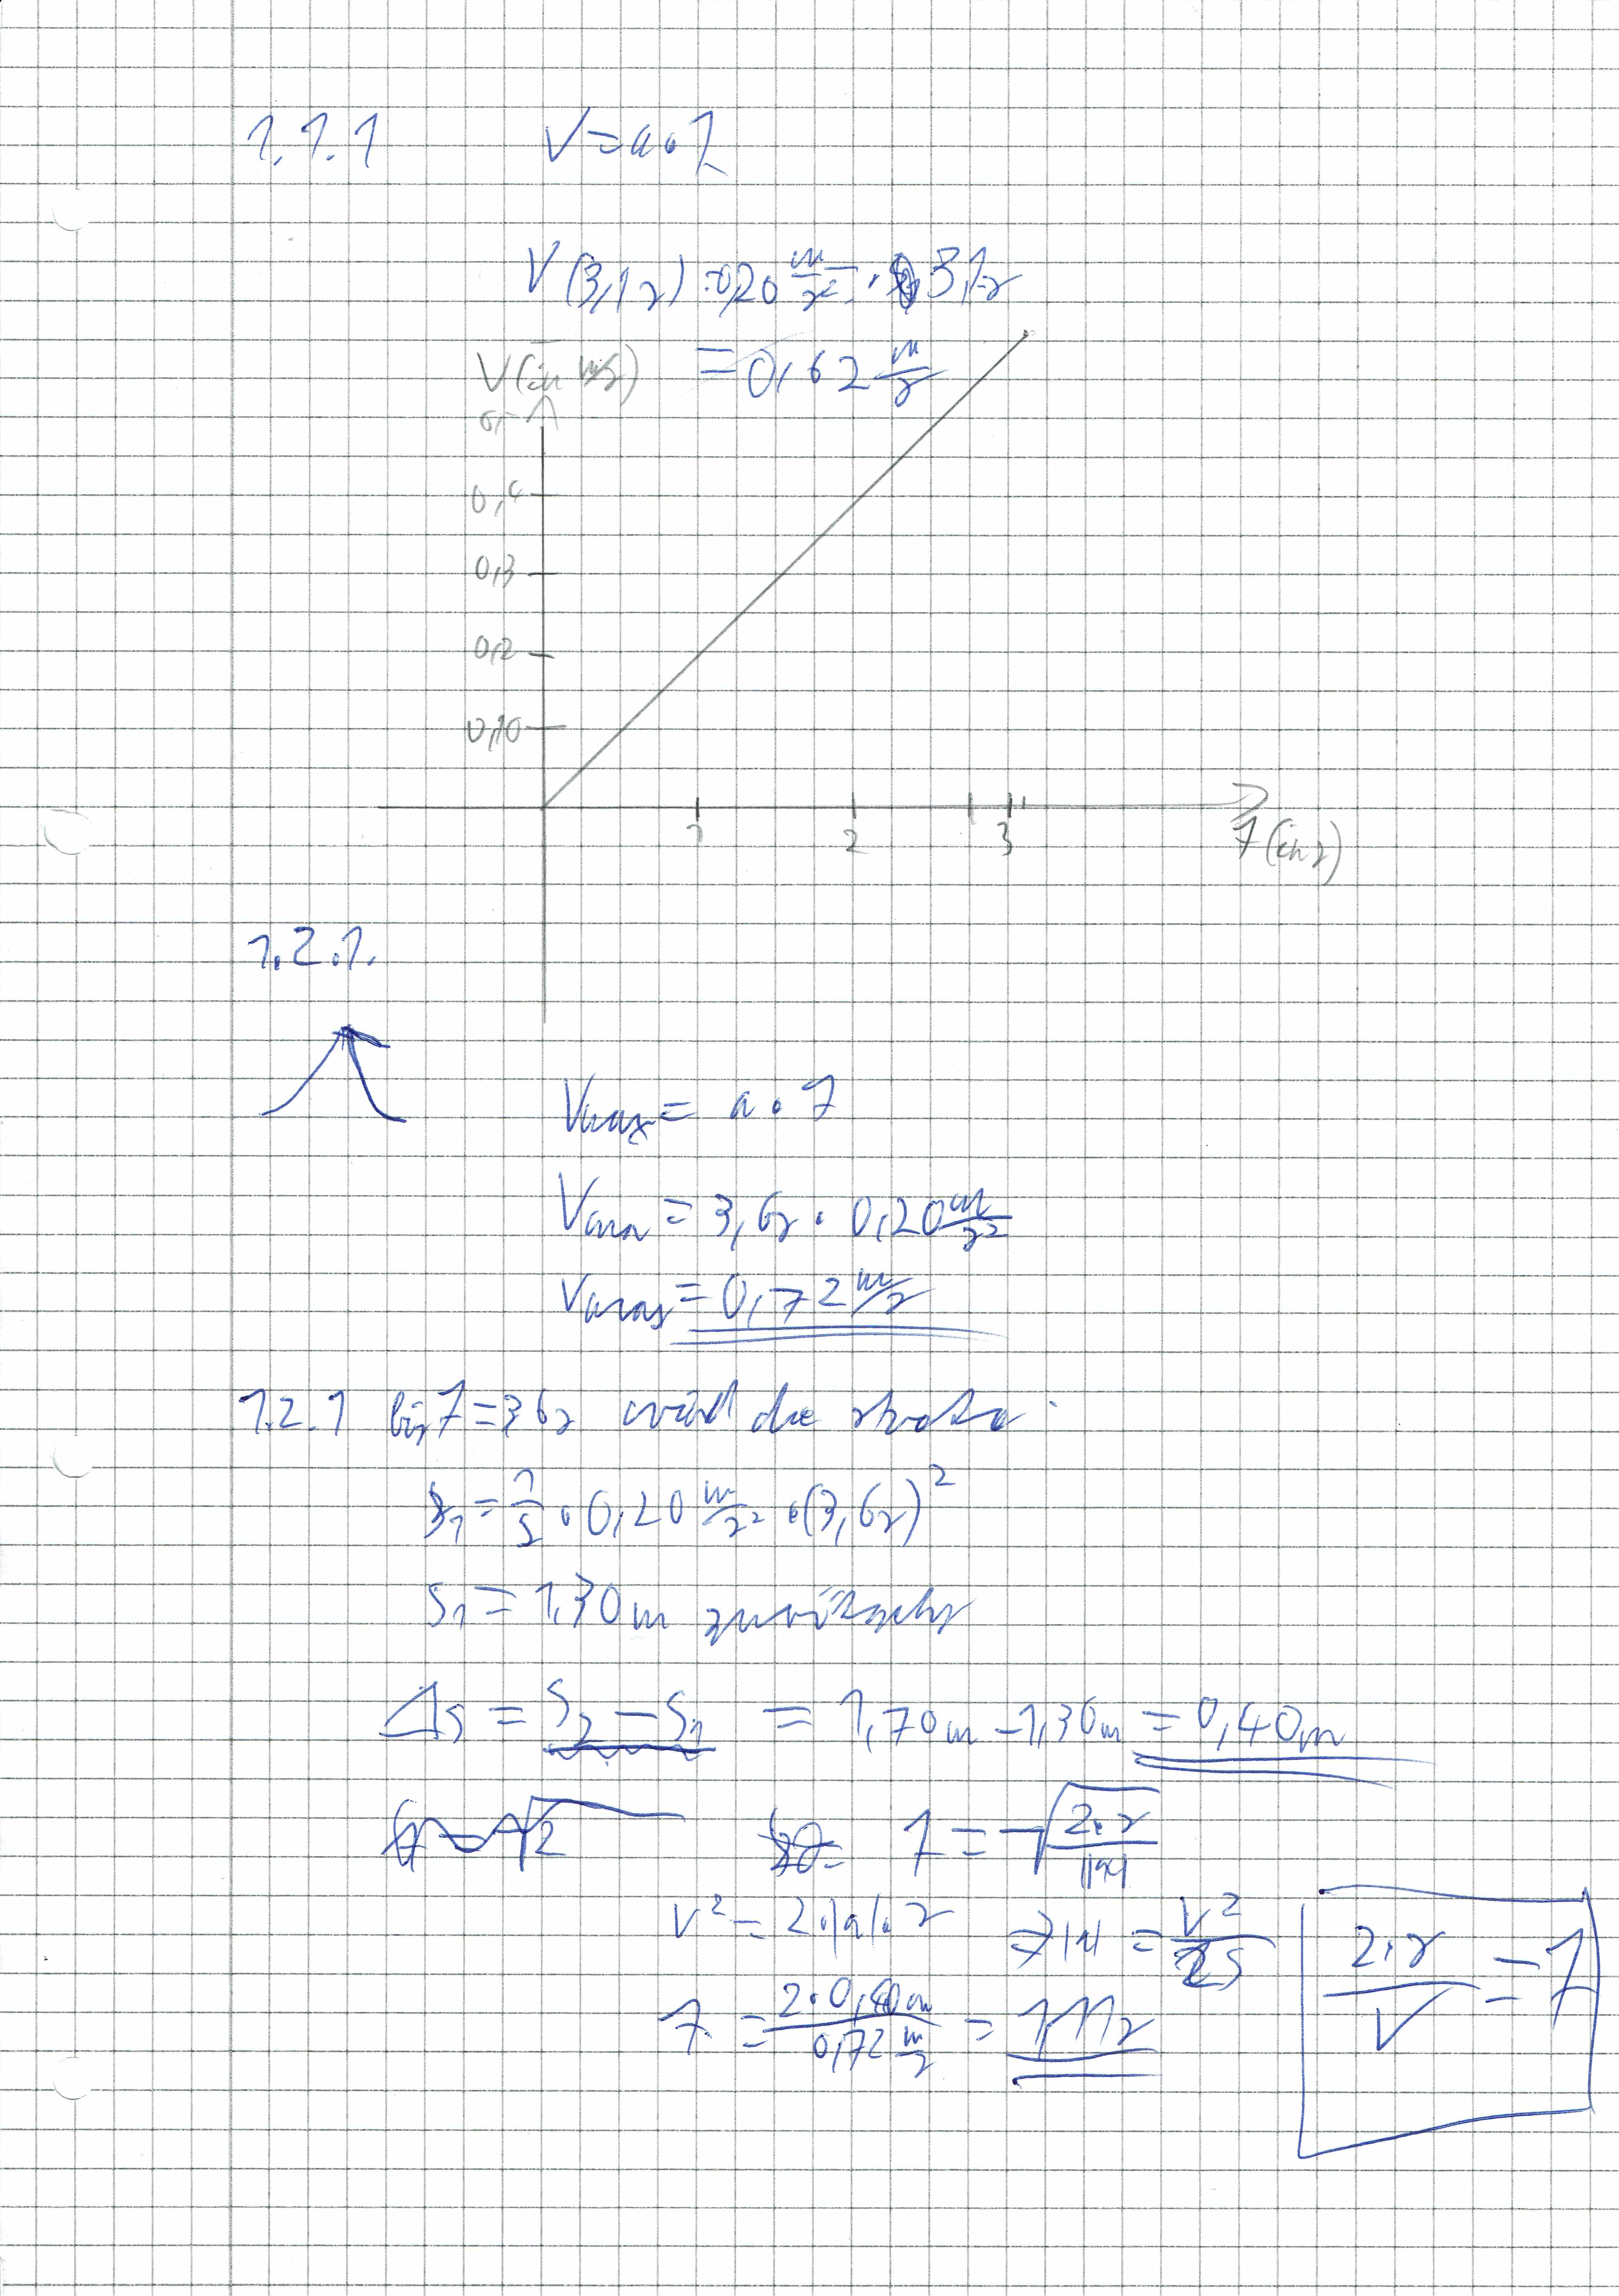 1.1.1 V = a · t
V(3,1s) = 0,20 m/s² · 3,1s
= 0,62 m/s
V(in m/s)
0,4
0,3
0,2
0,10
1 2 3
t (in s)
1.2.1.
Vmax = a · t
Vmax = 3,6s · 0,20 m/s²
Vmax = 0,72 m/s
1.2.1 bis t = 3,6s wird die
s₁ = 1/2 · 0,20 m/s² · (3,6s)²
s₁ = 1,30m
Δs = s₂ - s₁ = 1,70m - 1,30m = 0,40m
t = √(2·s/|a|)
V² = 2·|a|·s ⇒ |a| = V²/2s
2·s/V = t
t = 2·0,40m / 0,72 m/s = 1,11s